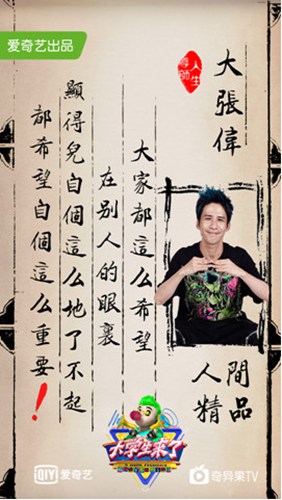 爱奇艺出品
人生
導師
大張偉
大家都這么希望
在别人的眼裏
顯得兒自個這么地了不起
都希望自個這么重要！
人間
精品
大学生来了
QIY 爱奇艺
奇异果TV